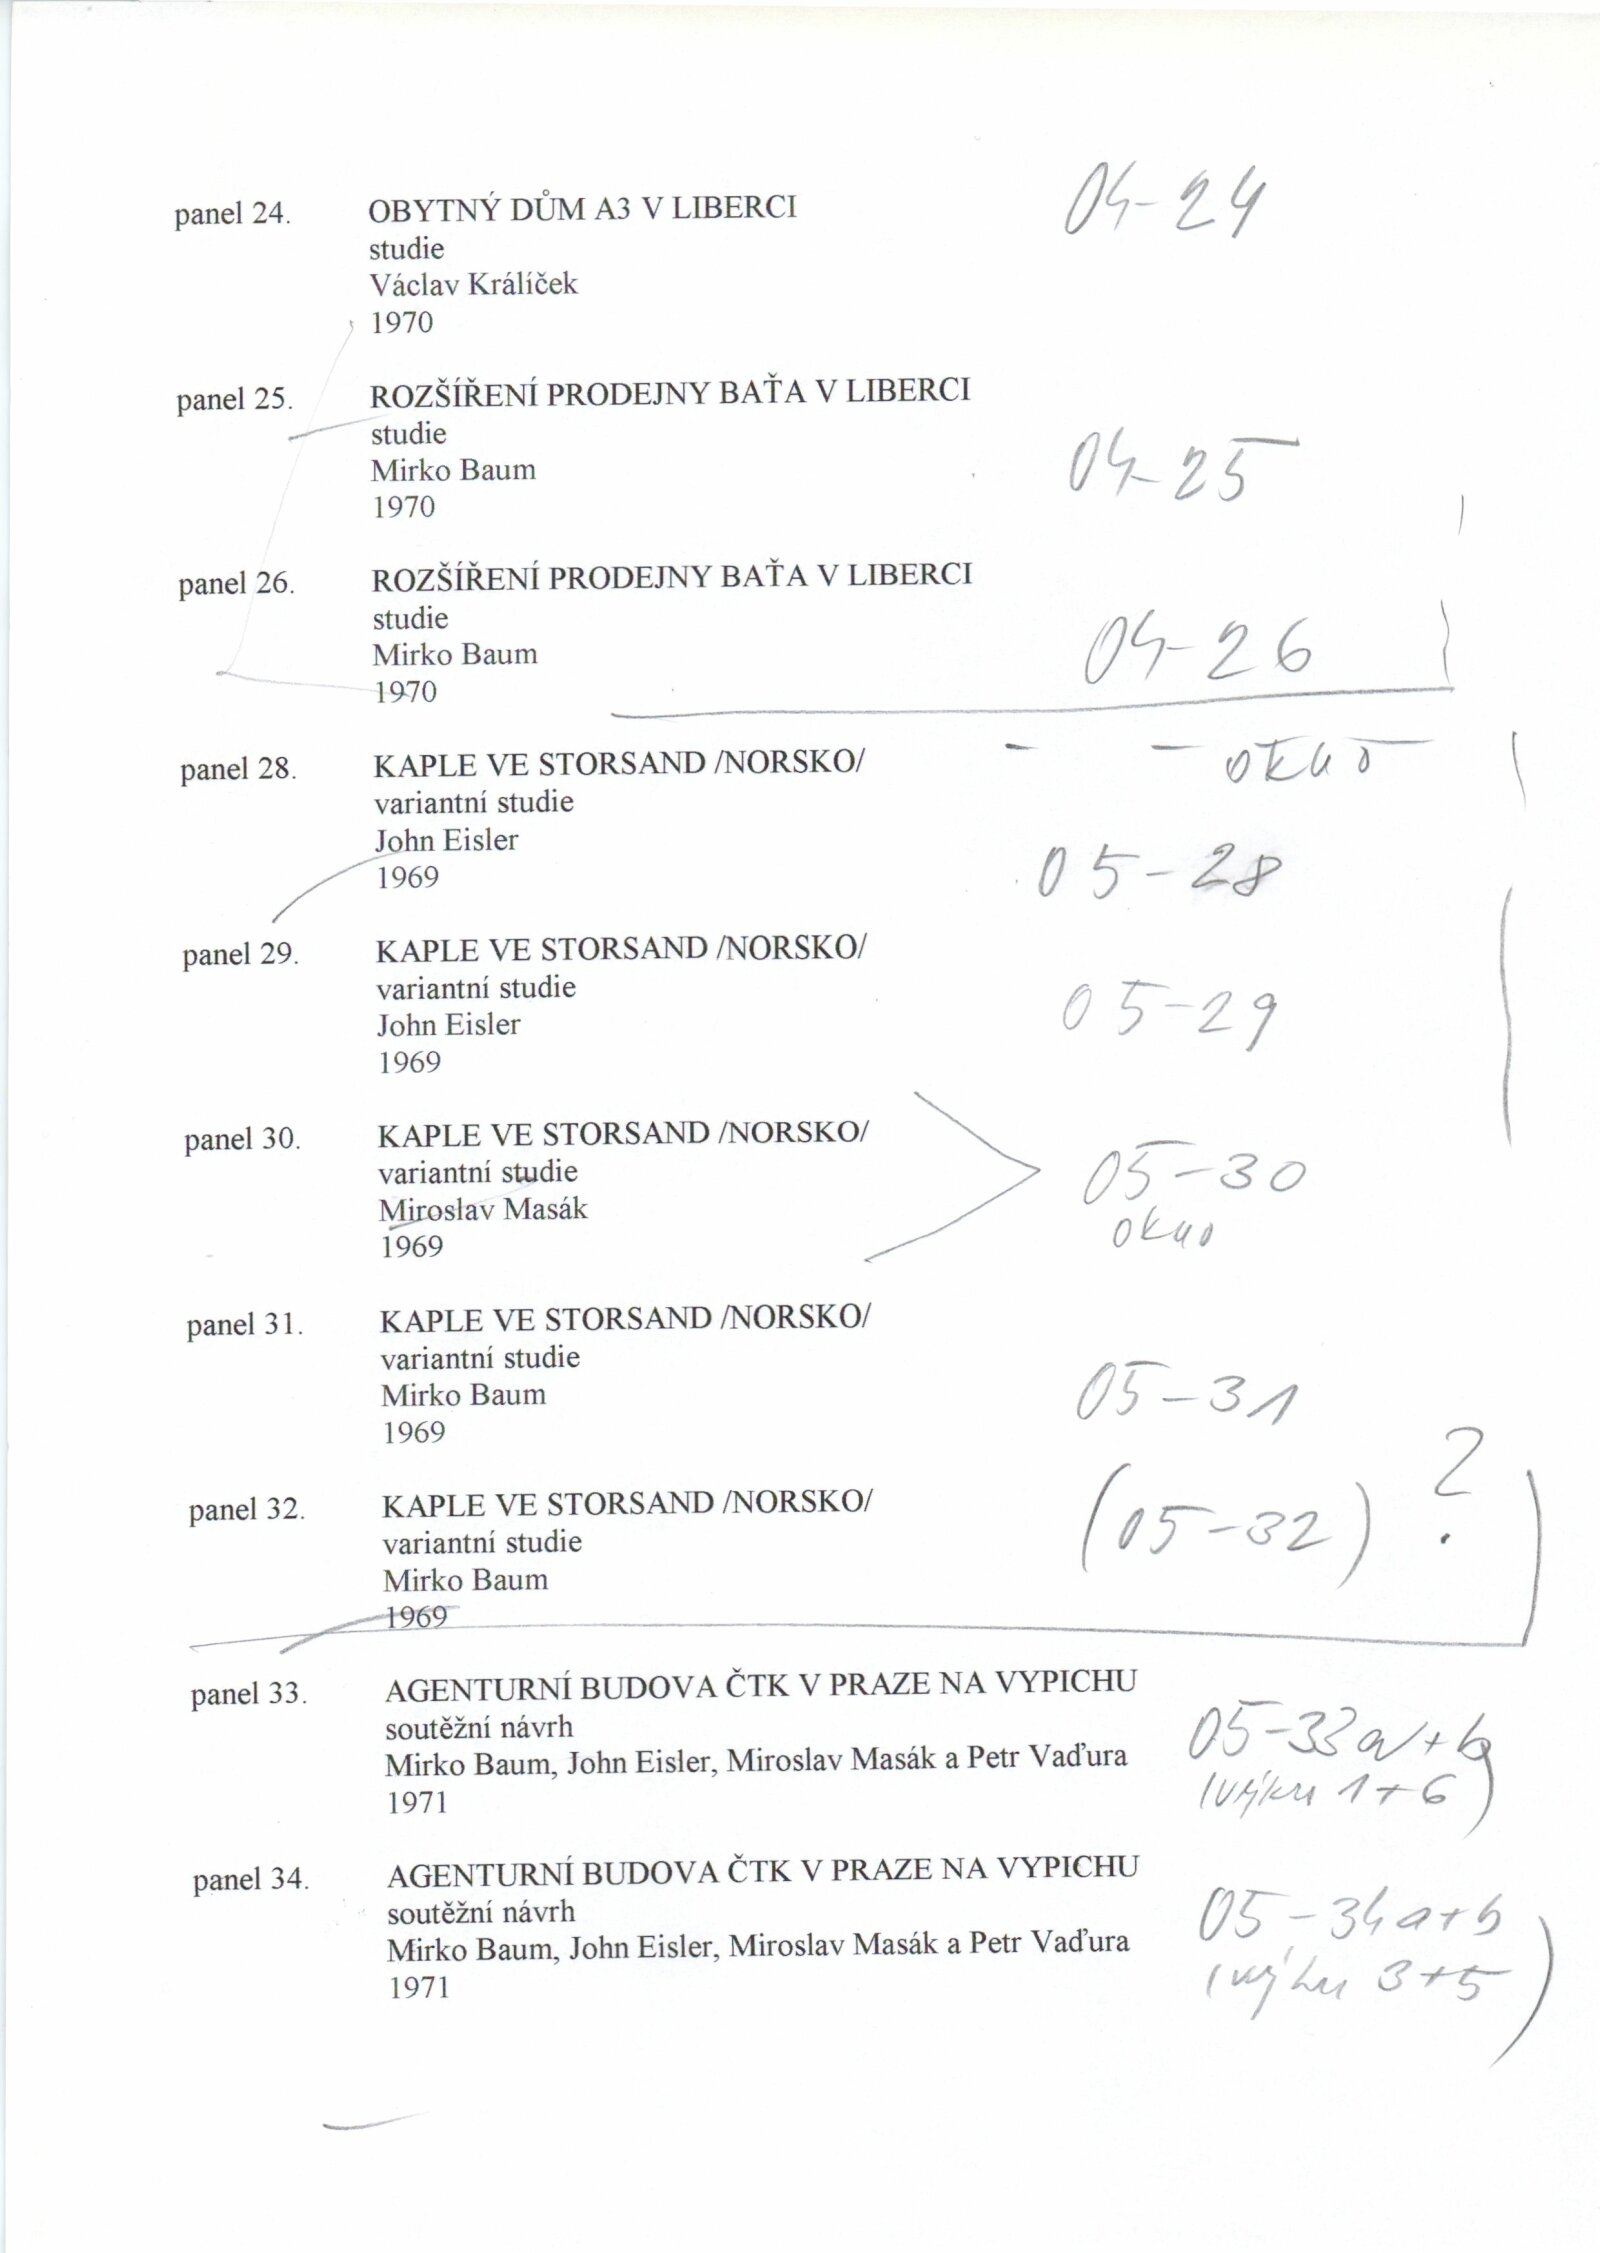 panel 24. OBYTNÝ DŮM A3 V LIBERCI 04-24
studie
Václav Králíček
1970
panel 25. ROZŠÍŘENÍ PRODEJNY BAŤA V LIBERCI
studie
Mirko Baum 04-25
1970
panel 26. ROZŠÍŘENÍ PRODEJNY BAŤA V LIBERCI
studie
Mirko Baum 04-26
1970
panel 28. KAPLE VE STORSAND /NORSKO/ - - okno
variantní studie
John Eisler
1969 05-28
panel 29. KAPLE VE STORSAND /NORSKO/
variantní studie
John Eisler 05-29
1969
panel 30. KAPLE VE STORSAND /NORSKO/
variantní studie 05-30
Miroslav Masák
1969 okno
panel 31. KAPLE VE STORSAND /NORSKO/
variantní studie
Mirko Baum 05-31
1969
panel 32. KAPLE VE STORSAND /NORSKO/
variantní studie (05-32) ?
Mirko Baum
1969
panel 33. AGENTURNÍ BUDOVA ČTK V PRAZE NA VYPICHU
soutěžní návrh 05-33a+b
Mirko Baum, John Eisler, Miroslav Masák a Petr Vaďura
1971 1+6)
panel 34. AGENTURNÍ BUDOVA ČTK V PRAZE NA VYPICHU
soutěžní návrh 05-34a+b
Mirko Baum, John Eisler, Miroslav Masák a Petr Vaďura
1971 3+5)